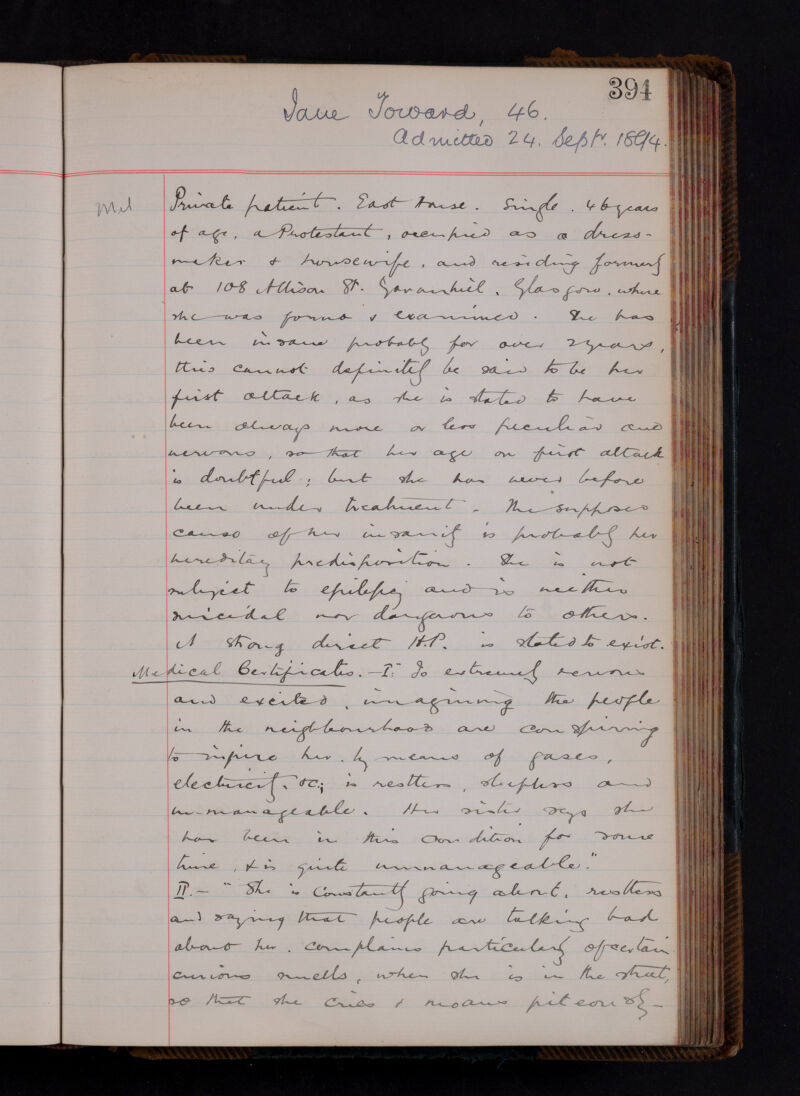 394
Jane Toward, 46.
Admitted 24. Sept. 1894.
Mel
Private patient. East House. Single. 46 years
of age, a Protestant, occupied as a dress-
maker & housewife, and residing formerly
at 108 Allison St. Govanhill, Glasgow, where
she was found & examined. She has
been insane probably for over 2 years,
this cannot definitely be said to be her
first attack, as she is stated to have
been always more or less peculiar and
nervous, so that her age on first attack
is doubtful; but she has never before
been under treatment. The supposed
cause of her insanity is probably her
hereditary predisposition. She is not
subject to epilepsy and is neither
suicidal nor dangerous to others.
A strong direct H.P. is stated to exist.
Medical Certificates. – I. Is extremely nervous
and excited, imagining the people
in the neighbourhood are conspiring
to injure her by means of gases,
electricity, &c; is restless, sleepless and
un-manageable. Her sister says she
has been in this condition for some
time, & is quite unmanageable."
II. – "She is constantly going about, restless
and saying that people are talking bad
about her. Complains particularly of certain
curious smells, when she is in the street,
so that she cries & moans piteously –